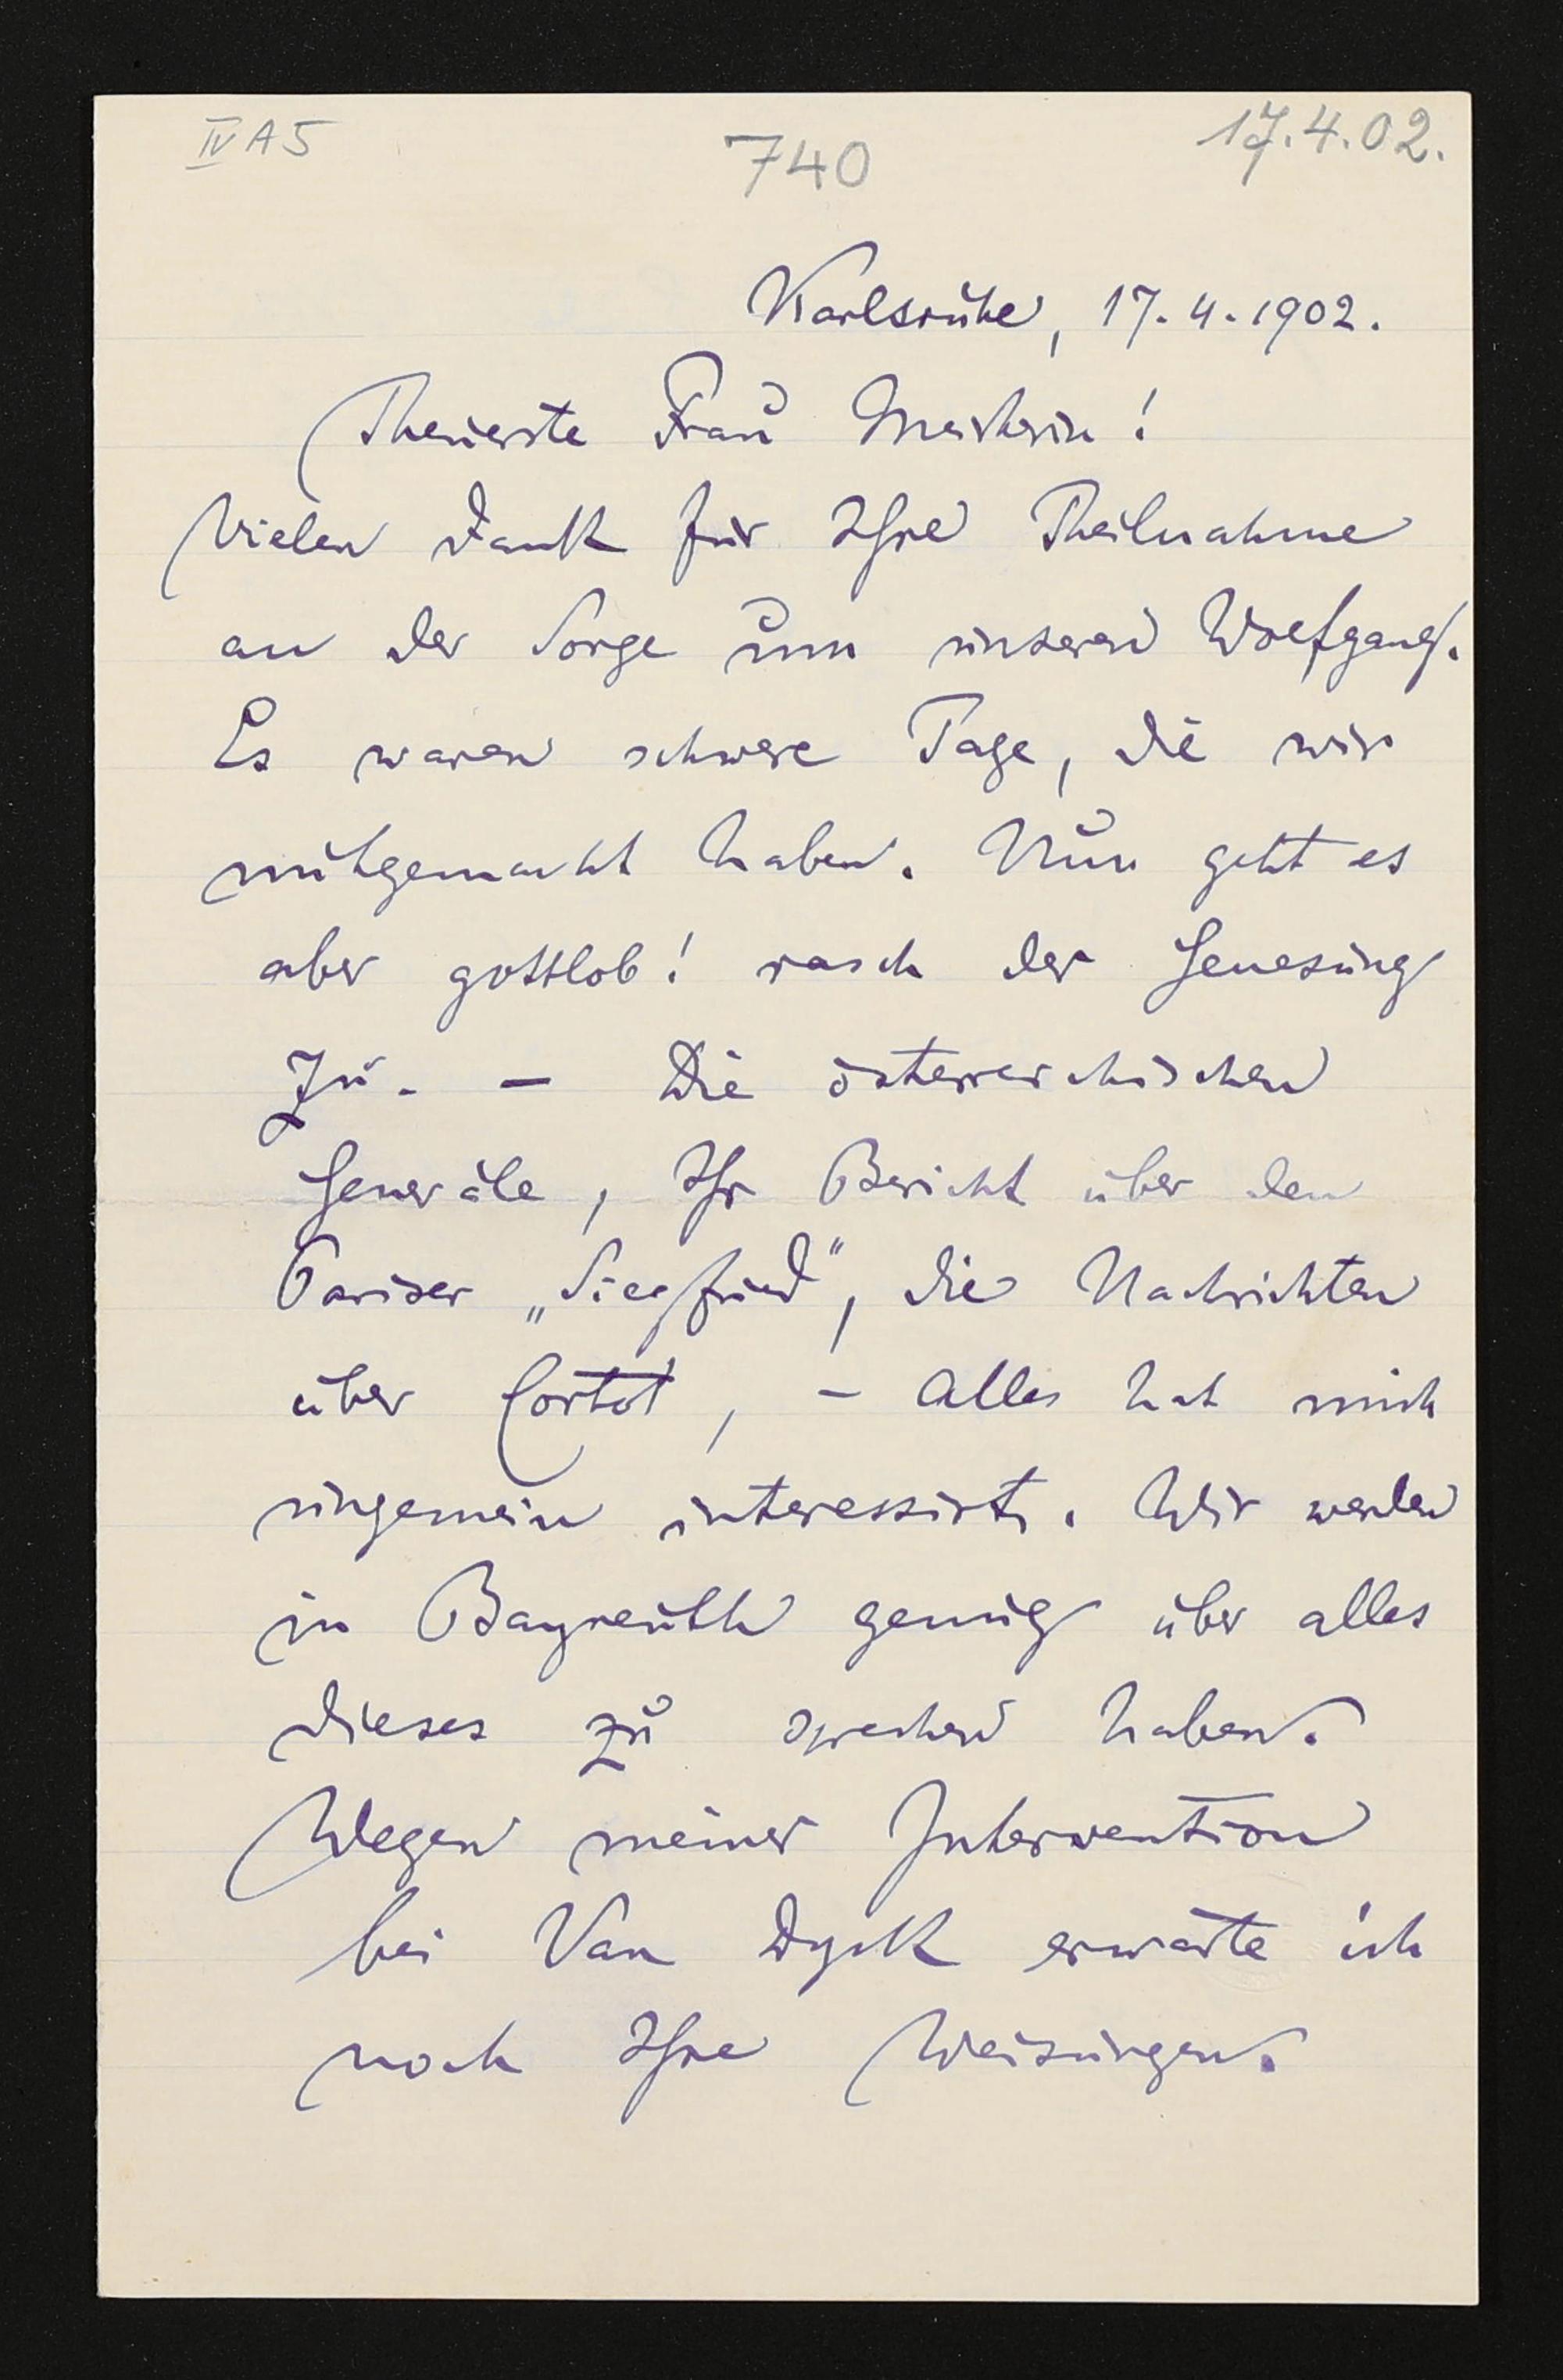 IV A 5
740
17.4.02.
Karlsruhe, 17.4.1902.
Theuerste Frau Meisterin!
Vielen Dank für Ihre Theilnahme
an der Sorge um unseren Wolfgang.
Es waren schwere Tage, die wir
mitgemacht haben. Nun geht es
aber gottlob! rasch der Genesung
zu. — Die österreichischen
Generäle, Ihr Bericht über den
Pariser „Siegfried“, die Nachrichten
über Cortot, — Alles hat mich
ungemein interessirt. Wir werden
in Bayreuth genug über alles
dieses zu sprechen haben.
Wegen meiner Intervention
bei Van Dyck erwarte ich
noch Ihre Weisungen.